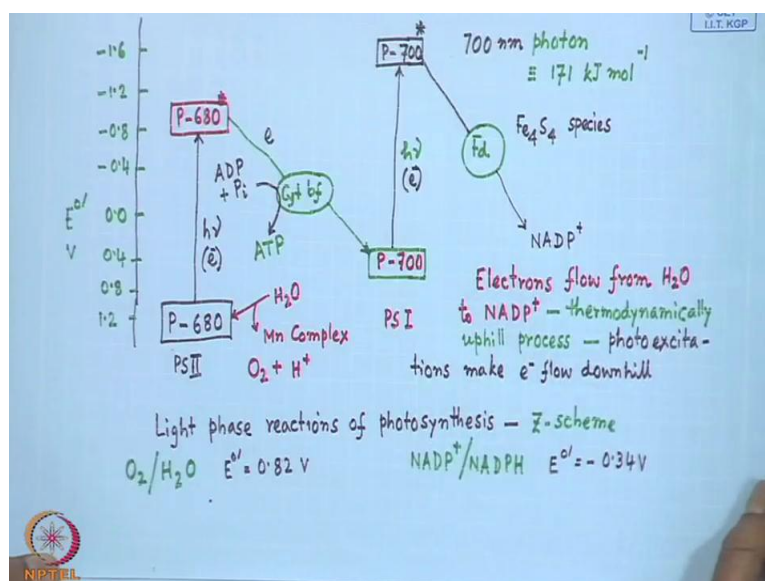 © CET
I.I.T. KGP
-1.6
-1.2
-0.8
-0.4
0.0
0.4
0.8
1.2
E°′
V
P-680*
e
ADP
+ Pi
Cyt bf
ATP
hν
(e⁻)
P-680
PSII
H₂O
Mn Complex
O₂ + H⁺
P-700*
hν
(e⁻)
P-700
PSI
700 nm photon
≡ 171 kJ mol⁻¹
Fe₄S₄ species
Fd
NADP⁺
Electrons flow from H₂O
to NADP⁺ – thermodynamically
uphill process – photoexcita-
tions make e⁻ flow downhill
Light phase reactions of photosynthesis – Z-scheme
O₂/H₂O E°′ = 0.82 V NADP⁺/NADPH E°′ = - 0.34 V
NPTEL